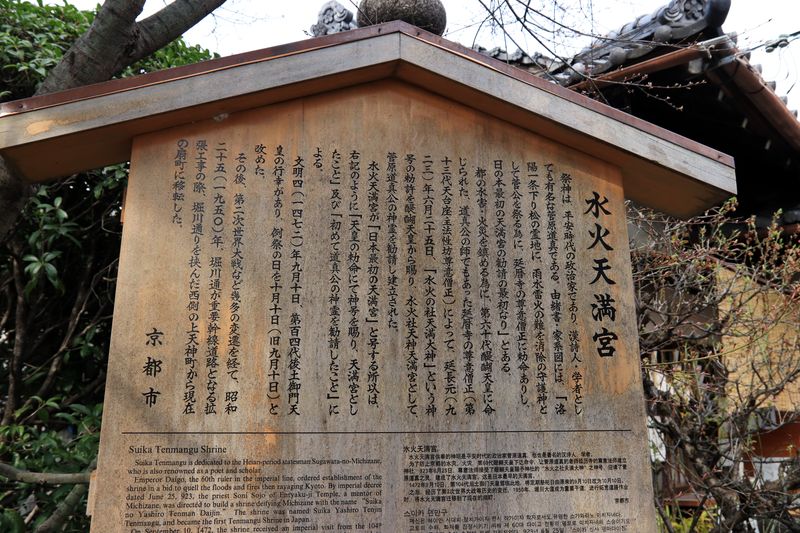 水火天満宮
祭神は、平安時代の政治家であり、漢詩人・学者とし
ても有名な菅原道真である。由緒書、家系図には、「洛
陽一条下り松の霊地に、雨水雷火の難を消除の守護神と
して菅公を祭る為に、延暦寺の尊意僧正に勅命ありし
日の本最初の天満宮の勧請の最初なり」とある。
都の水害・火災を鎮める為に、第六十代醍醐天皇に命
じられた、道真公の師でもあった延暦寺の尊意僧正（第
十三代天台座主法性坊尊意僧正）によって、延長元（九
二三）年六月二十五日、「水火の社天満大神」という神
号の勅許を醍醐天皇から賜り、水火社天神天満宮として、
菅原道真公の神霊を勧請し建立された。
水火天満宮が「日本最初の天満宮」と号する所以は、
右記のように「天皇の勅命にて神号を賜り、天満宮とし
たこと」及び「初めて道真公の神霊を勧請したこと」に
よる。
文明四（一四七二）年九月十日、第百四代後土御門天
皇の行幸があり、例祭の日を十月十日（旧九月十日）と
改めた。
その後、第二次世界大戦など幾多の変遷を経て、昭和
二十五（一九五〇）年、堀川通が重要幹線道路となる拡
張工事の際、堀川通りを挟んだ西側の上天神町から現在
の扇町に移転した。
京都市
Suika Tenmangu Shrine
Suika Tenmangu is dedicated to the Heian-period statesman Sugawara-no-Michizane,
who is also renowned as a poet and scholar.
Emperor Daigo, the 60th ruler in the imperial line, ordered establishment of the
shrine in a bid to quell the floods and fires then ravaging Kyoto. By imperial decree
dated June 25, 923, the priest Soni Sojo of Enryaku-ji Temple, a mentor of
Michizane, was directed to build a shrine deifying Michizane with the name "Suika
no Yashiro Tenman Daijin." The shrine was named Suika Yashiro Tenjin
Tenmangu, and became the first Tenmangu Shrine in Japan.
On September 10, 1472, the shrine received an imperial visit from the 104th
水火天满宫